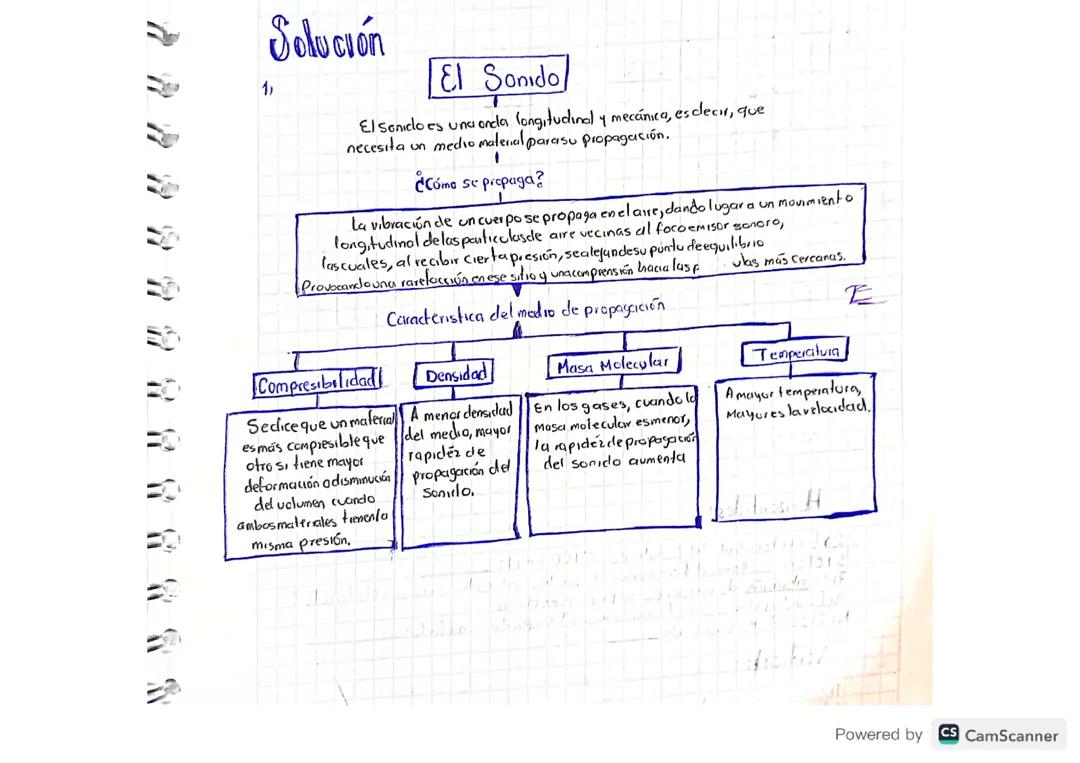 Solución
1,
El Sonido
El sonido es una onda longitudinal y mecánica, es decir, que
necesita un medio material para su propagación.
¿Cómo se propaga?
La vibración de un cuerpo se propaga en el aire, dando lugar a un movimiento
longitudinal de las particulas de aire vecinas al foco emisor sonoro,
las cuales, al recibir cierta presión, se alejan de su punto de equilibrio
Provocando una rarefacción en ese sitio y una comprensión hacia las p ulas más cercanas.
Caracteristica del medio de propagación
Compresibilidad
Densidad
Masa Molecular
Temperatura
Se dice que un material
es más compresible que
otro si tiene mayor
deformación o disminución
del volumen cuando
ambos materiales tienen la
misma presión.
A menor densidad
del medio, mayor
rapidéz de
propagación del
Sonido.
En los gases, cuando la
masa molecular es menor,
la rapidéz de propagación
del sonido aumenta
A mayor temperatura,
Mayor es la velocidad.
Powered by CS CamScanner